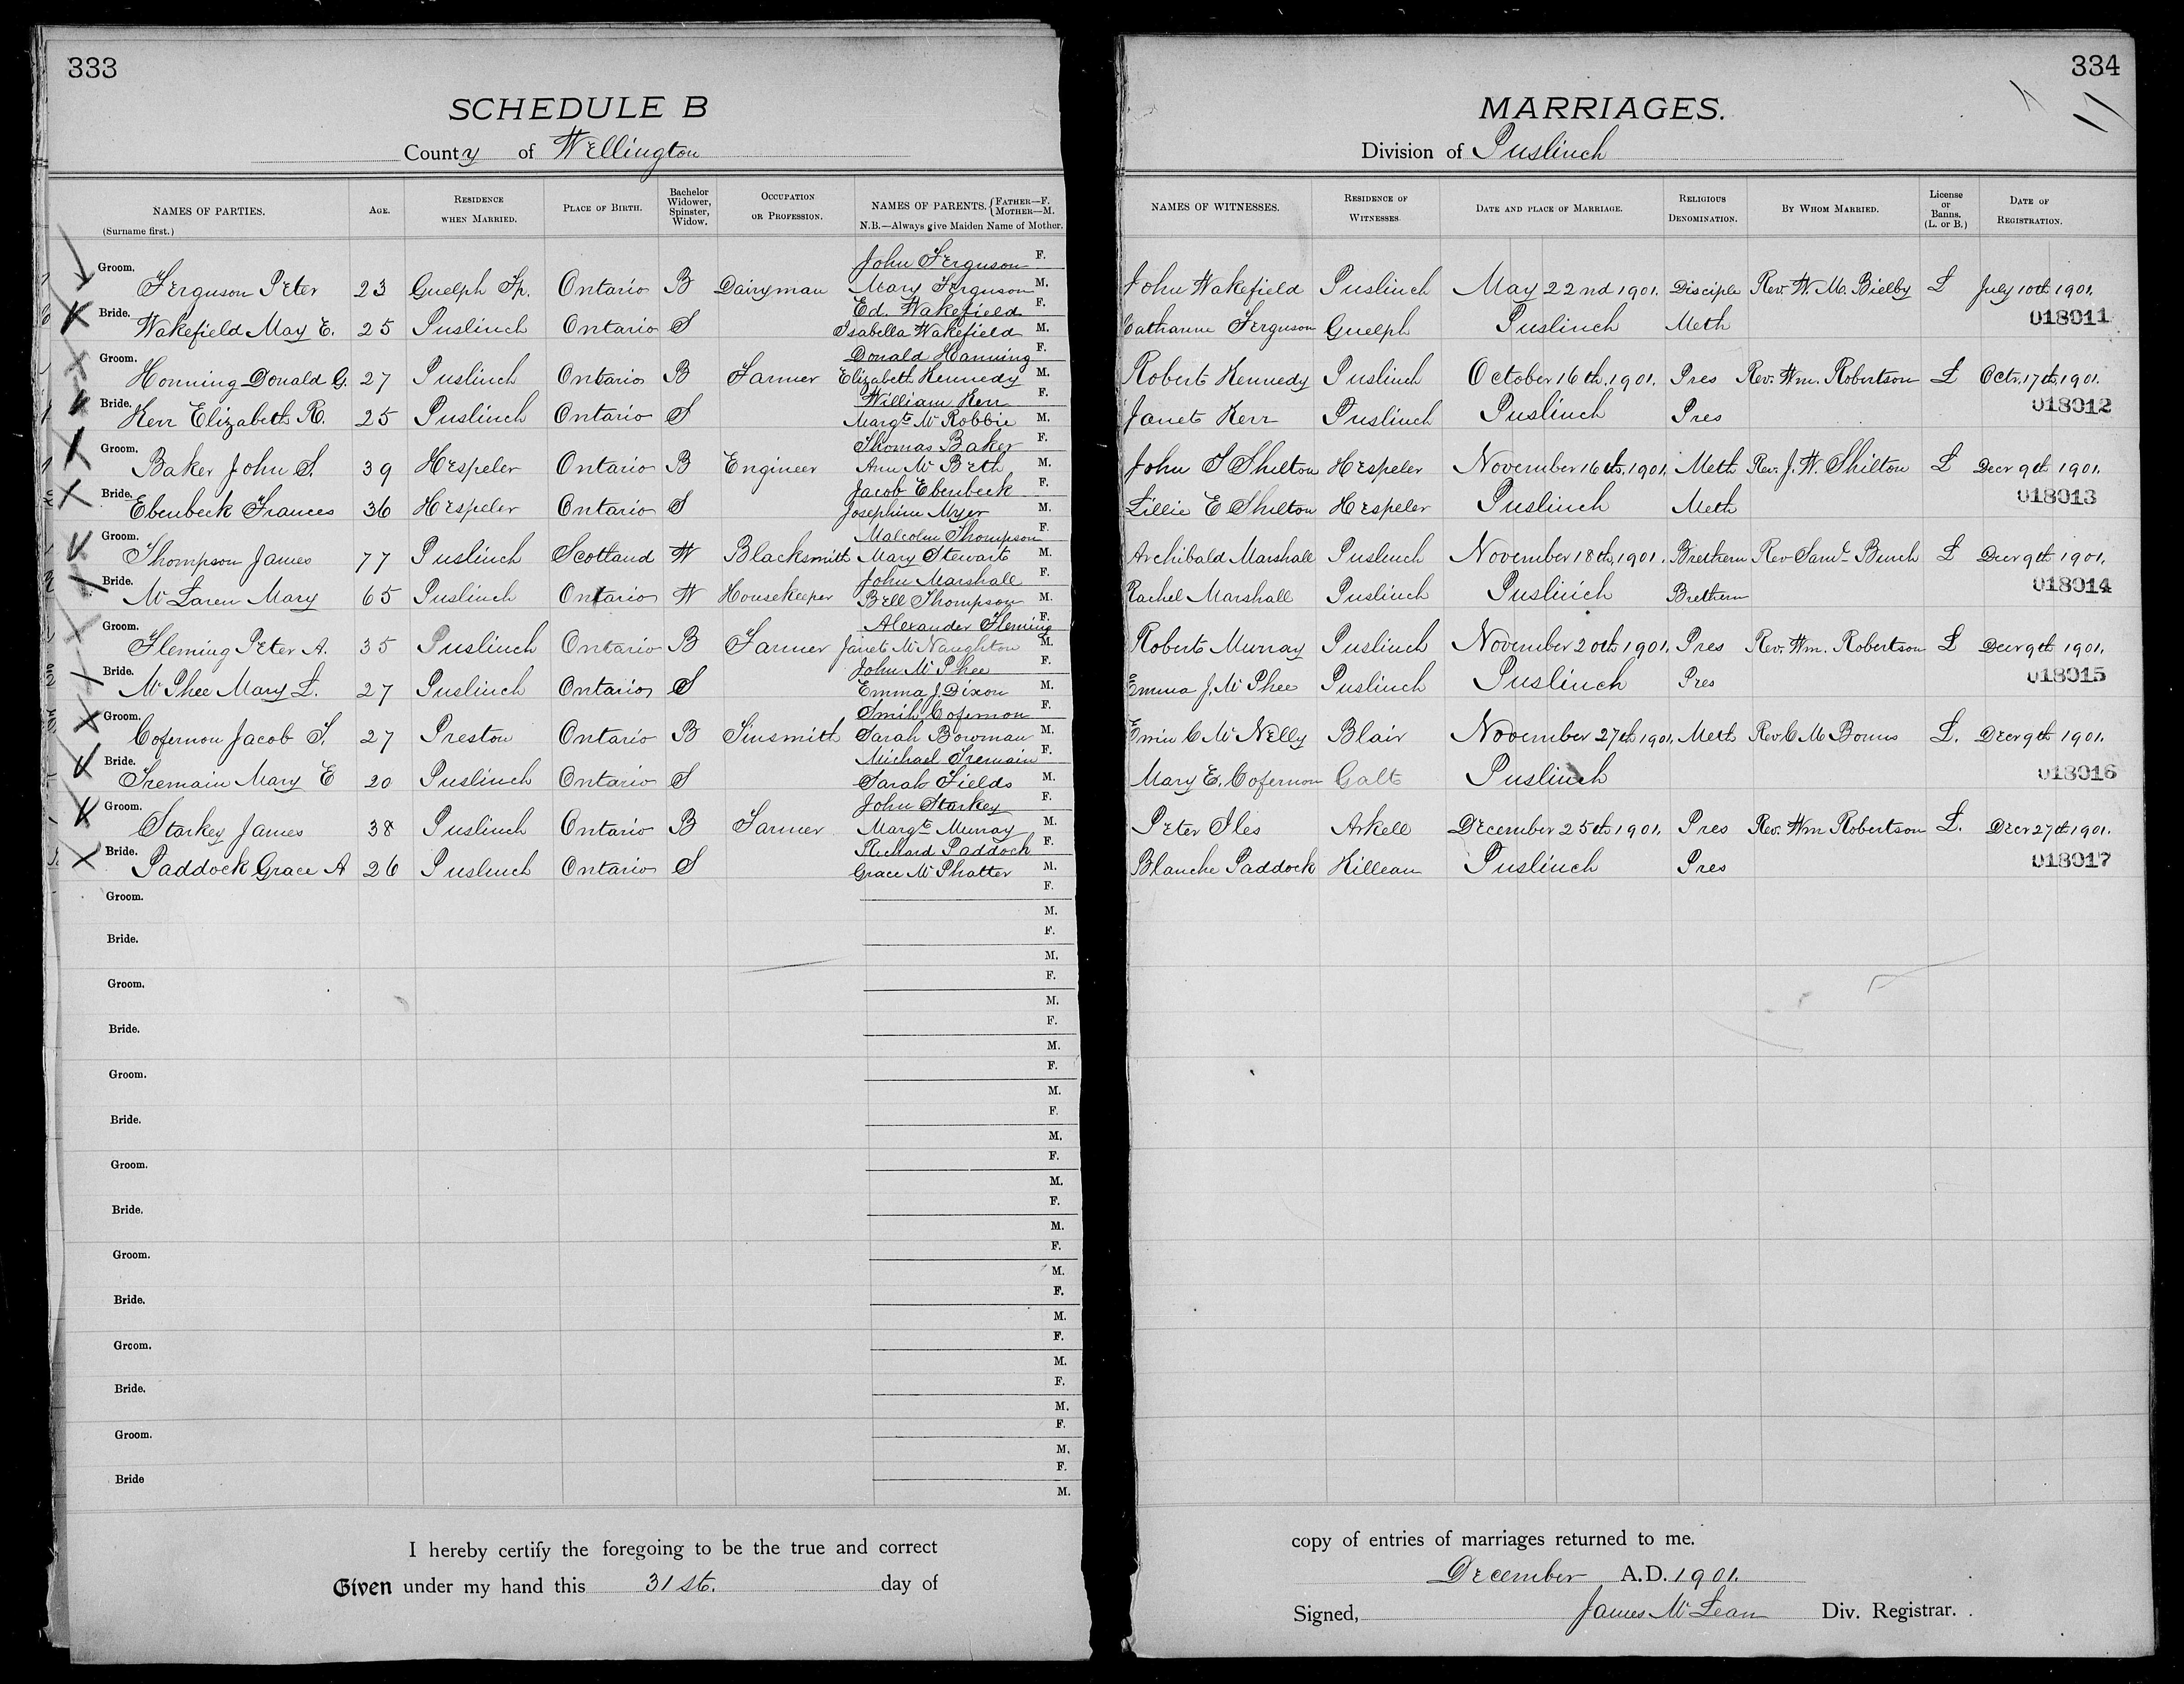 333
SCHEDULE B
County of Wellington
NAMES OF PARTIES. (Surname first.) AGE. RESIDENCE WHEN MARRIED. PLACE OF BIRTH. Bachelor Widower, Spinster, Widow. OCCUPATION OR PROFESSION. NAMES OF PARENTS. {FATHER—F. {MOTHER—M. N.B.—Always give Maiden Name of Mother.
John Ferguson F.
Groom. Ferguson Peter 23 Guelph Tp. Ontario B Dairyman Mary Ferguson M.
Ed. Wakefield F.
Bride. Wakefield May E. 25 Puslinch Ontario S Isabella Wakefield M.
Donald Hanning F.
Groom. Honning Donald G. 27 Puslinch Ontario B Farmer Elizabeth Kennedy M.
William Kerr F.
Bride. Kerr Elizabeth R. 25 Puslinch Ontario S Margt McRobbie M.
Thomas Baker F.
Groom. Baker John S. 39 Hespeler Ontario B Engineer Ann McBeth M.
Jacob Ebenbeck F.
Bride. Ebenbeck Frances 36 Hespeler Ontario S Josephine Myer M.
Malcolm Thompson F.
Groom. Thompson James 77 Puslinch Scotland W Blacksmith Mary Stewart M.
John Marshall F.
Bride. McLaren Mary 65 Puslinch Ontario W Housekeeper Bell Thompson M.
Alexander Fleming F.
Groom. Fleming Peter A. 35 Puslinch Ontario B Farmer Janet McNaughton M.
John McPhee F.
Bride. McPhee Mary L. 27 Puslinch Ontario S Emma J. Dixon M.
Smih Cofernon F.
Groom. Cofernon Jacob S. 27 Preston Ontario B Tinsmith Sarah Bowman M.
Michael Tremain F.
Bride. Tremain Mary E 20 Puslinch Ontario S Sarah Fields M.
John Starkey F.
Groom. Starkey James 38 Puslinch Ontario B Farmer Margt Murray M.
Richard Paddock F.
Bride. Paddock Grace A 26 Puslinch Ontario S Grace McPhatter M.
F.
Groom.
M.
F.
Bride.
M.
F.
Groom.
M.
F.
Bride.
M.
F.
Groom.
M.
F.
Bride.
M.
F.
Groom.
M.
F.
Bride.
M.
F.
Groom.
M.
F.
Bride.
M.
F.
Groom.
M.
F.
Bride.
M.
F.
Groom.
M.
F.
Bride
M.
I hereby certify the foregoing to be the true and correct
Given under my hand this 31st. day of
334
MARRIAGES.
Division of Puslinch
NAMES OF WITNESSES. RESIDENCE OF WITNESSES. DATE AND PLACE OF MARRIAGE. RELIGIOUS DENOMINATION. BY WHOM MARRIED. License or Banns. (L. or B.) DATE OF REGISTRATION.
John Wakefield Puslinch May 22nd 1901. Disciple Rev. W. M. Bielby L July 10th 1901.
Catharine Ferguson Guelph Puslinch Meth 018011
Robert Kennedy Puslinch October 16th, 1901. Pres Rev. Wm. Robertson L Octr. 17th, 1901.
Janet Kerr Puslinch Puslinch Pres 018012
John S Shilton Hespeler November 16th, 1901. Meth Rev. J. W. Shilton L Decr 9th 1901.
Lillie E Shilton Hespeler Puslinch Meth 018013
Archibald Marshall Puslinch November 18th, 1901. Brethern Rev Saml Bunch L Decr 9th 1901.
Rachel Marshall Puslinch Puslinch Brethern 018014
Robert Murray Puslinch November 20th 1901. Pres Rev. Wm. Robertson L Decr 9th 1901.
Emma J. McPhee Puslinch Puslinch Pres 018015
C McNelly Blair November 27th 1901. Meth Rev C M L. Decr 9th 1901.
Mary E. Cofernon Galt Puslinch 018016
Peter Iles Arkell December 25th 1901. Pres Rev. Wm Robertson L. Decr 27th 1901.
Blanche Paddock Killean Puslinch Pres 018017
copy of entries of marriages returned to me.
December A.D. 1901.
Signed, James McLean Div. Registrar.